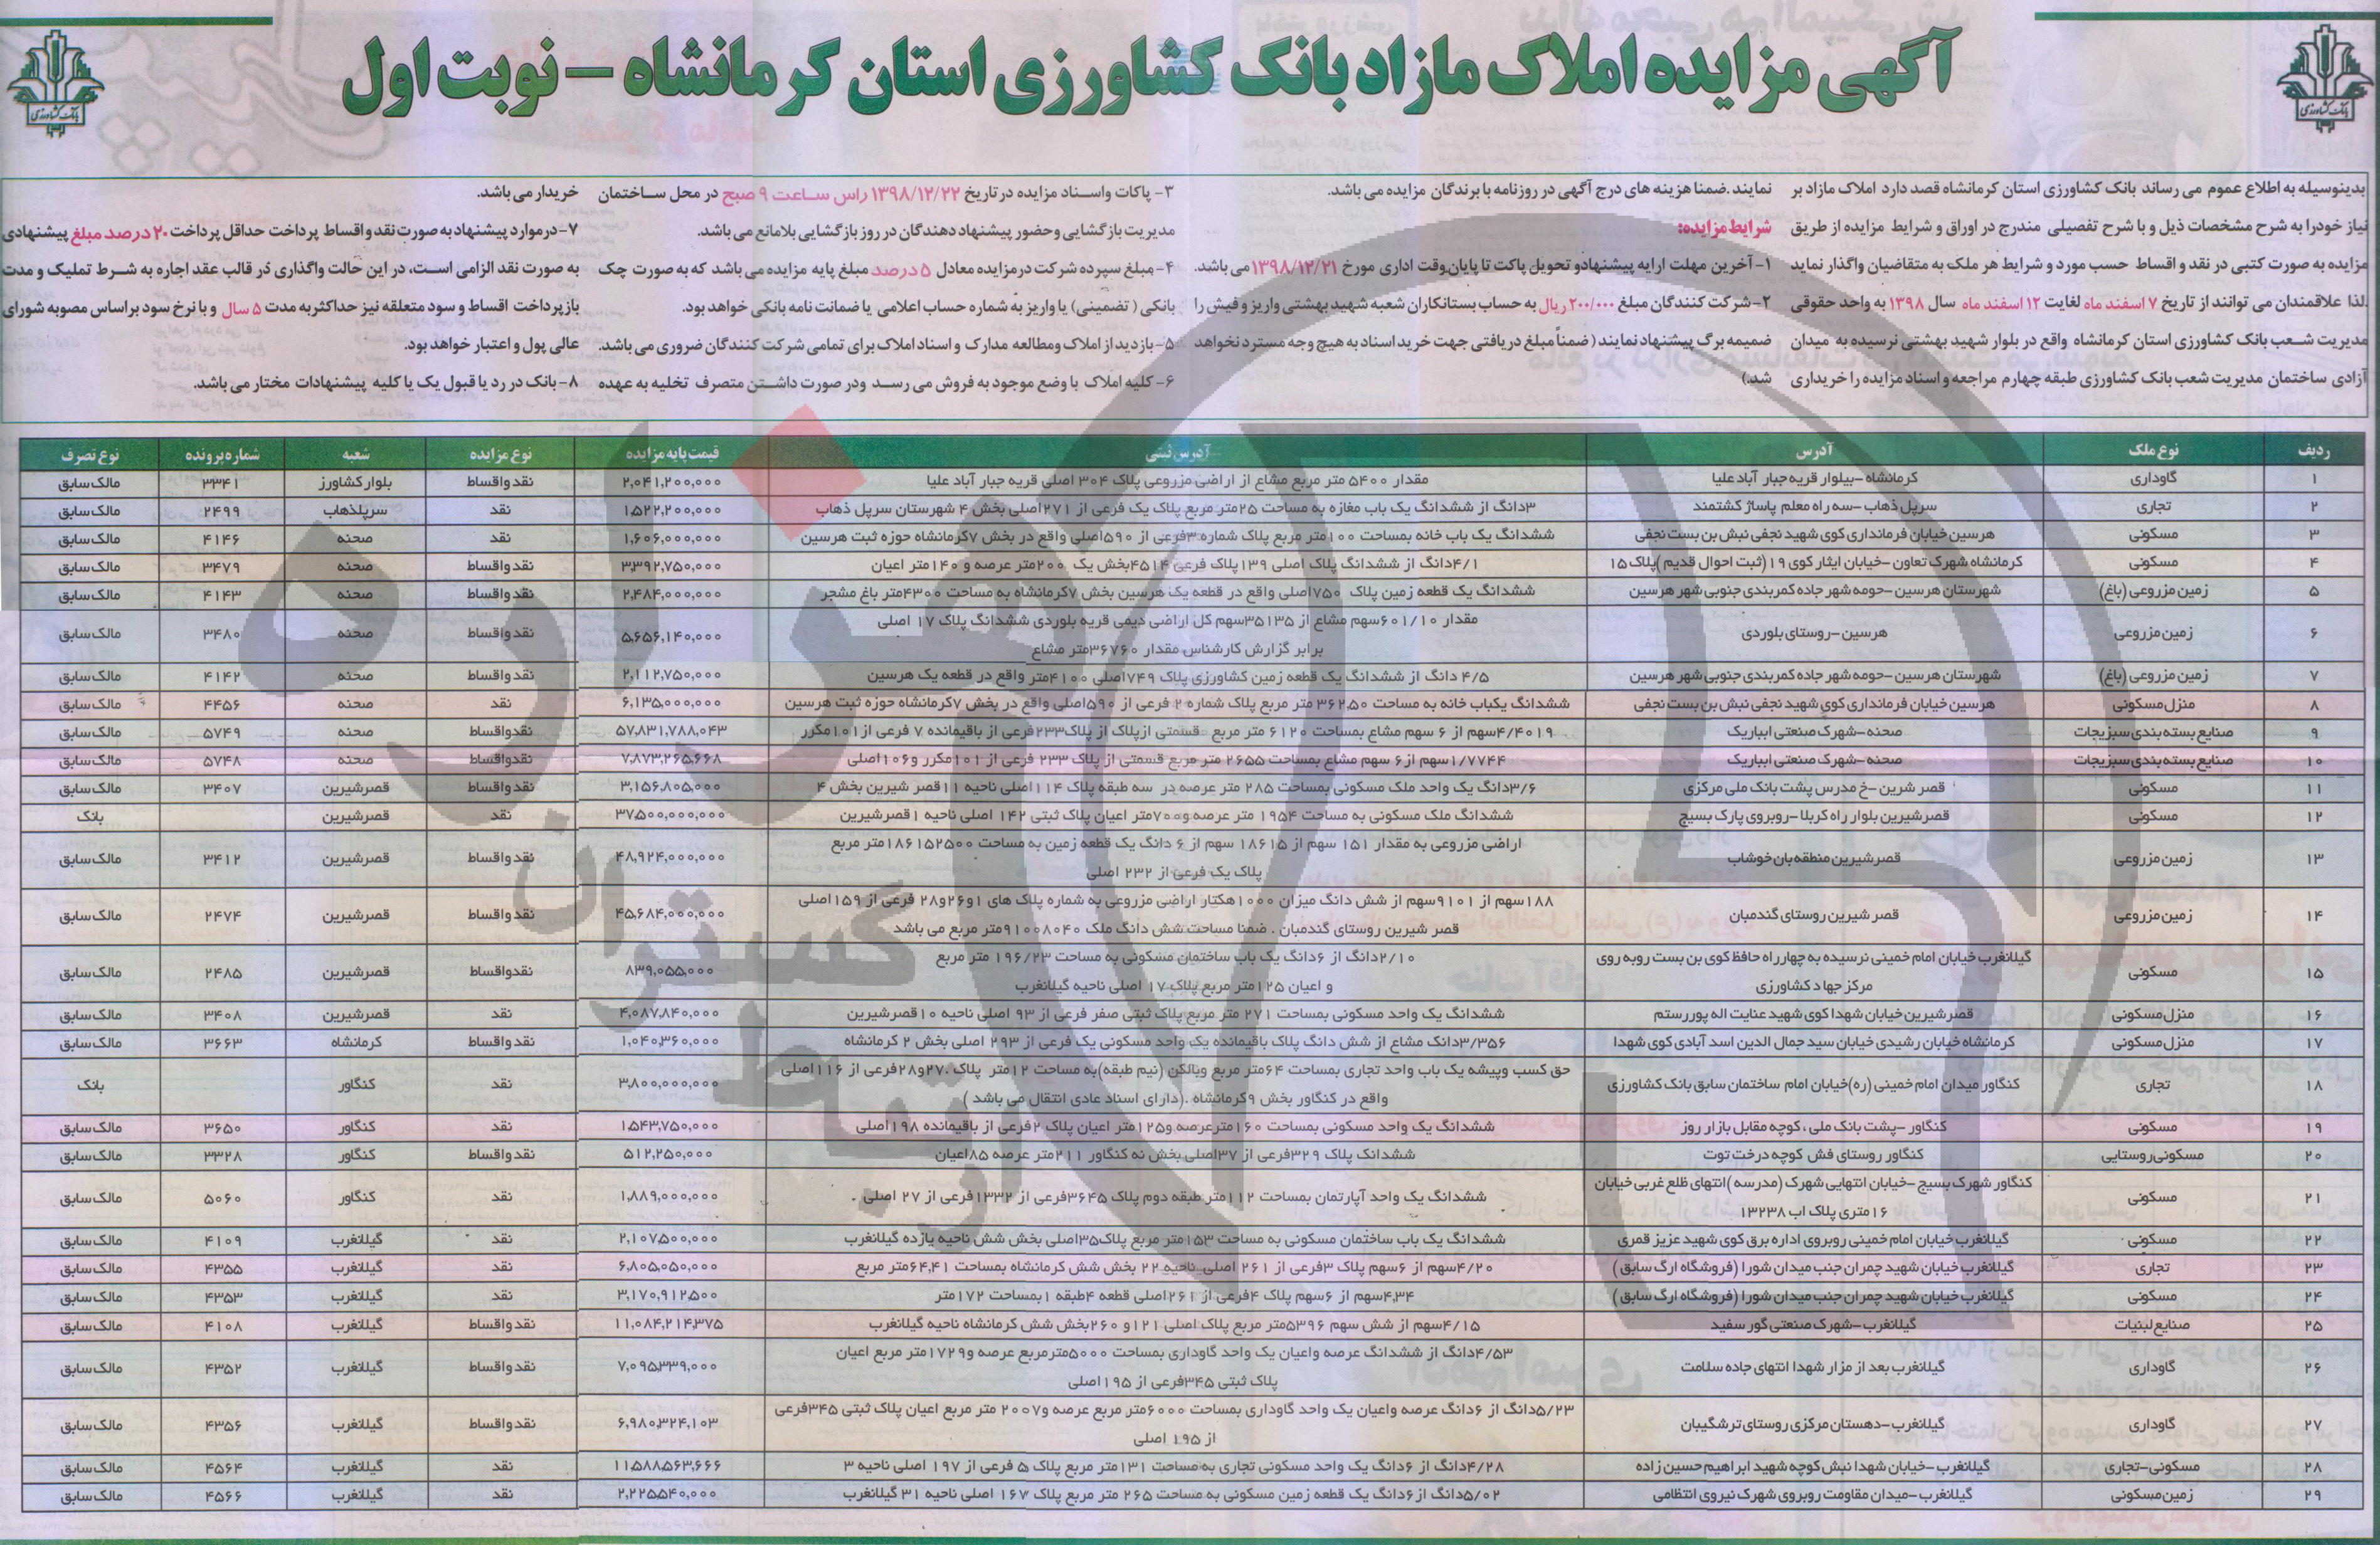 آگهی مزایده املاک مازاد بانک کشاورزی استان کرمانشاه – نوبت اول
بانک کشاورزی
بانک کشاورزی
بدینوسیله به اطلاع عموم می رساند بانک کشاورزی استان کرمانشاه قصد دارد املاک مازاد بر
نیاز خودرا به شرح مشخصات ذیل و با شرح تفصیلی مندرج در اوراق و شرایط مزایده از طریق
مزایده به صورت کتبی در نقد و اقساط حسب مورد و شرایط هر ملک به متقاضیان واگذار نماید
.لذا علاقمندان می توانند از تاریخ ۷ اسفند ماه لغایت ۱۲ اسفند ماه سال ۱۳۹۸ به واحد حقوقی
مدیریت شعب بانک کشاورزی استان کرمانشاه واقع در بلوار شهید بهشتی نرسیده به میدان
آزادی ساختمان مدیریت شعب بانک کشاورزی طبقه چهارم مراجعه و اسناد مزایده را خریداری
نمایند.ضمنا هزینه های درج آگهی در روزنامه با برندگان مزایده می باشد.
شرایط مزایده:
۱- آخرین مهلت ارایه پیشنهادو تحویل پاکت تا پایان وقت اداری مورخ ۱۳۹۸/۱۲/۲۱ می باشد.
۲- شرکت کنندگان مبلغ ۲۰۰/۰۰۰ ریال به حساب بستانکاران شعبه شهید بهشتی واریز و فیش را
ضمیمه برگ پیشنهاد نمایند ( ضمناً مبلغ دریافتی جهت خرید اسناد به هیچ وجه مسترد نخواهد
شد.)
۳- پاکات واسناد مزایده در تاریخ ۱۳۹۸/۱۲/۲۲ راس ساعت ۹ صبح در محل ساختمان
مدیریت بازگشایی وحضور پیشنهاد دهندگان در روز بازگشایی بلامانع می باشد.
۴- مبلغ سپرده شرکت درمزایده معادل ۵ درصد مبلغ پایه مزایده می باشد که به صورت چک
بانکی ( تضمینی ) یا واریز به شماره حساب اعلامی یا ضمانت نامه بانکی خواهد بود.
۵- بازدید از املاک ومطالعه مدارک و اسناد املاک برای تمامی شرکت کنندگان ضروری می باشد.
۶- کلیه املاک با وضع موجود به فروش می رسد ودر صورت داشتن متصرف تخلیه به عهده
خریدار می باشد.
۷- درموارد پیشنهاد به صورت نقد و اقساط پرداخت حداقل پرداخت ۲۰ درصد مبلغ پیشنهادی
به صورت نقد الزامی است، در این حالت واگذاری در قالب عقد اجاره به شرط تملیک و مدت
بازپرداخت اقساط و سود متعلقه نیز حداکثر به مدت ۵ سال و با نرخ سود براساس مصوبه شورای
عالی پول و اعتبار خواهد بود.
۸- بانک در رد یا قبول یک یا کلیه پیشنهادات مختار می باشد.
ردیف نوع ملک آدرس آدرس ثبتی قیمت پایه مزایده نوع مزایده شعبه شماره پرونده نوع تصرف
۱ گاوداری کرمانشاه -بیلوار قریه جبار آباد علیا مقدار ۵۴۰۰ متر مربع مشاع از اراضی مزروعی پلاک ۳۰۴ اصلی قریه جبار آباد علیا ۲,۰۴۱,۲۰۰,۰۰۰ نقدواقساط بلوار کشاورز ۳۳۴۱ مالک سابق
۲ تجاری سرپل ذهاب -سه راه معلم پاساژ کشتمند ۳دانگ از ششدانگ یک باب مغازه به مساحت ۲۵متر مربع پلاک یک فرعی از ۲۷۱اصلی بخش ۴ شهرستان سرپل ذهاب ۱,۵۲۲,۲۰۰,۰۰۰ نقد سرپلذهاب ۲۴۹۹ مالک سابق
۳ مسکونی هرسین خیابان فرمانداری کوی شهید نجفی نبش بن بست نجفی ششدانگ یک باب خانه بمساحت ۱۰۰متر مربع پلاک شماره ۳فرعی از ۵۹۰اصلی واقع در بخش ۷کرمانشاه حوزه ثبت هرسین ۱,۶۰۶,۰۰۰,۰۰۰ نقد صحنه ۴۱۴۶ مالک سابق
۴ مسکونی کرمانشاه شهرک تعاون -خیابان ایثار کوی ۱۹(ثبت احوال قدیم )پلاک ۱۵ ۴/۱دانگ از ششدانگ پلاک اصلی ۱۳۹پلاک فرعی ۴۵۱۴بخش یک ۲۰۰متر عرصه و ۱۴۰متر اعیان ۳,۳۹۲,۷۵۰,۰۰۰ نقدواقساط صحنه ۳۴۷۹ مالک سابق
۵ زمین مزروعی (باغ) شهرستان هرسین -حومه شهر جاده کمربندی جنوبی شهر هرسین ششدانگ یک قطعه زمین پلاک ۷۵۰اصلی واقع در قطعه یک هرسین بخش ۷کرمانشاه به مساحت ۴۳۰۰متر باغ مشجر ۲,۴۸۴,۰۰۰,۰۰۰ نقدواقساط صحنه ۴۱۴۳ مالک سابق
۶ زمین مزروعی هرسین -روستای بلوردی مقدار ۶۰۱/۱۰سهم مشاع از ۳۵۱۳۵سهم کل اراضی دیمی قریه بلوردی ششدانگ پلاک ۱۷ اصلی
برابر گزارش کارشناس مقدار ۳۶۷۶۰متر مشاع ۵,۶۵۶,۱۴۰,۰۰۰ نقدواقساط صحنه ۳۴۸۰ مالک سابق
۷ زمین مزروعی (باغ) شهرستان هرسین -حومه شهر جاده کمربندی جنوبی شهر هرسین ۴/۵ دانگ از ششدانگ یک قطعه زمین کشاورزی پلاک ۷۴۹اصلی ۴۱۰۰متر واقع در قطعه یک هرسین ۲,۱۱۲,۷۵۰,۰۰۰ نقدواقساط صحنه ۴۱۴۲ مالک سابق
۸ منزل مسکونی هرسین خیابان فرمانداری کوی شهید نجفی نبش بن بست نجفی ششدانگ یکباب خانه به مساحت ۳۶۲,۵۰ متر مربع پلاک شماره ۲ فرعی از ۵۹۰اصلی واقع در بخش ۷کرمانشاه حوزه ثبت هرسین ۶,۱۳۵,۰۰۰,۰۰۰ نقد صحنه ۴۴۵۶ مالک سابق
۹ صنایع بسته بندی سبزیجات صحنه -شهرک صنعتی ابباریک ۴/۴۰۱۹سهم از ۶ سهم مشاع بمساحت ۶۱۲۰ متر مربع قسمتی ازپلاک از پلاک۲۳۳فرعی از باقیمانده ۷ فرعی از۱۰۱مکرر ۵۷,۸۳۱,۷۸۸,۰۴۳ نقدواقساط صحنه ۵۷۴۹ مالک سابق
۱۰ صنایع بسته بندی سبزیجات صحنه -شهرک صنعتی ابباریک ۱/۷۷۴۴سهم از۶ سهم مشاع بمساحت ۲۶۵۵ متر مربع قسمتی از پلاک ۲۳۳ فرعی از ۱۰۱مکرر و۱۰۶اصلی ۷,۸۷۳,۲۶۵,۶۶۸ نقدواقساط صحنه ۵۷۴۸ مالک سابق
۱۱ مسکونی قصر شرین -خ مدرس پشت بانک ملی مرکزی ۳/۶دانگ یک واحد ملک مسکونی بمساحت ۲۸۵ متر عرصه در سه طبقه پلاک ۱۱۴اصلی ناحیه ۱۱قصر شیرین بخش ۴ ۳,۱۵۶,۸۰۵,۰۰۰ نقدواقساط قصرشیرین ۳۴۰۷ مالک سابق
۱۲ مسکونی قصرشیرین بلوار راه کربلا -روبروی پارک بسیج ششدانگ ملک مسکونی به مساحت ۱۹۵۴ متر عرصه و۷۰۰متر اعیان پلاک ثبتی ۱۴۲ اصلی ناحیه ۱قصرشیرین ۳۷,۵۰۰,۰۰۰,۰۰۰ نقد قصرشیرین بانک
۱۳ زمین مزروعی قصرشیرین منطقه بان خوشاب اراضی مزروعی به مقدار ۱۵۱ سهم از ۱۸۶۱۵ سهم از ۶ دانگ یک قطعه زمین به مساحت ۱۸۶۱۵۲۵۰۰متر مربع
پلاک یک فرعی از ۲۳۲ اصلی ۴۸,۹۲۴,۰۰۰,۰۰۰ نقدواقساط قصرشیرین ۳۴۱۲ مالک سابق
۱۴ زمین مزروعی قصر شیرین روستای گندمبان ۱۸۸سهم از ۹۱۰۱سهم از شش دانگ میزان ۱۰۰۰هکتار اراضی مزروعی به شماره پلاک های ۱و۲۶و۲۸ فرعی از ۱۵۹اصلی
قصر شیرین روستای گندمبان . ضمنا مساحت شش دانگ ملک ۹۱۰۰۸۰۴۰متر مربع می باشد ۴۵,۶۸۴,۰۰۰,۰۰۰ نقدواقساط قصرشیرین ۲۴۷۴ مالک سابق
۱۵ مسکونی گیلانغرب خیابان امام خمینی نرسیده به چهارراه حافظ کوی بن بست روبه روی
مرکز جهاد کشاورزی ۲/۱۰دانگ از ۶دانگ یک باب ساختمان مسکونی به مساحت ۱۹۶/۲۳ متر مربع
و اعیان ۱۲۵متر مربع پلاک ۱۷ اصلی ناحیه گیلانغرب ۸۳۹,۰۵۵,۰۰۰ نقدواقساط قصرشیرین ۲۴۸۵ مالک سابق
۱۶ منزل مسکونی قصرشیرین خیابان شهدا کوی شهید عنایت اله پوررستم ششدانگ یک واحد مسکونی بمساحت ۲۷۱ متر مربع پلاک ثبتی صفر فرعی از ۹۳ اصلی ناحیه ۱۰قصرشیرین ۴,۰۸۷,۸۴۰,۰۰۰ نقد قصرشیرین ۳۴۰۸ مالک سابق
۱۷ منزل مسکونی کرمانشاه خیابان رشیدی خیابان سید جمال الدین اسد آبادی کوی شهدا ۳/۳۵۶دانک مشاع از شش دانگ پلاک باقیمانده یک واحد مسکونی یک فرعی از ۲۹۳ اصلی بخش ۲ کرمانشاه ۱,۰۴۰,۳۶۰,۰۰۰ نقدواقساط کرمانشاه ۳۶۶۳ مالک سابق
۱۸ تجاری کنگاور میدان امام خمینی (ره)خیابان امام ساختمان سابق بانک کشاورزی حق کسب وپیشه یک باب واحد تجاری بمساحت ۶۴متر مربع وبالکن (نیم طبقه)به مساحت ۱۲متر پلاک ۲۷۰و۲۸فرعی از ۱۱۶اصلی
واقع در کنگاور بخش ۹کرمانشاه .(دارای اسناد عادی انتقال می باشد ) ۳,۸۰۰,۰۰۰,۰۰۰ نقد کنگاور بانک
۱۹ مسکونی کنگاور -پشت بانک ملی ، کوچه مقابل بازار روز ششدانگ یک واحد مسکونی بمساحت ۱۶۰مترعرصه و۱۲۵متر اعیان پلاک ۲فرعی از باقیمانده ۱۹۸اصلی ۱,۵۴۳,۷۵۰,۰۰۰ نقد کنگاور ۳۶۵۰ مالک سابق
۲۰ مسکونی روستایی کنگاور روستای فش کوچه درخت توت ششدانک پلاک ۳۲۹فرعی از ۳۷اصلی بخش نه کنگاور ۲۱۱متر عرصه ۸۵اعیان ۵۱۲,۲۵۰,۰۰۰ نقدواقساط کنگاور ۳۳۲۸ مالک سابق
۲۱ مسکونی کنگاور شهرک بسیج -خیابان انتهایی شهرک (مدرسه )انتهای ظلع غربی خیابان
۱۶متری پلاک اب ۱۳۲۳۸ ششدانگ یک واحد آپارتمان بمساحت ۱۱۲متر طبقه دوم پلاک ۳۶۴۵فرعی از ۱۳۳۲فرعی از ۲۷ اصلی . ۱,۸۸۹,۰۰۰,۰۰۰ نقد کنگاور ۵۰۶۰ مالک سابق
۲۲ مسکونی گیلانغرب خیابان امام خمینی روبروی اداره برق کوی شهید عزیز قمری ششدانگ یک باب ساختمان مسکونی به مساحت ۱۵۳متر مربع پلاک۳۵اصلی بخش شش ناحیه یازده گیلانغرب ۲,۱۰۷,۵۰۰,۰۰۰ نقد گیلانغرب ۴۱۰۹ مالک سابق
۲۳ تجاری گیلانغرب خیابان شهید چمران جنب میدان شورا (فروشگاه ارگ سابق ) ۴/۲۰سهم از ۶سهم پلاک ۳فرعی از ۲۶۱ اصلی ناحیه ۲۲ بخش شش کرمانشاه بمساحت ۶۴,۴۱متر مربع ۶,۸۰۵,۰۵۰,۰۰۰ نقد گیلانغرب ۴۳۵۵ مالک سابق
۲۴ مسکونی گیلانغرب خیابان شهید چمران جنب میدان شورا (فروشگاه ارگ سابق ) ۴,۳۴سهم از ۶سهم پلاک ۴فرعی از ۲۶۱اصلی قطعه ۴طبقه ۱بمساحت ۱۷۲متر ۳,۱۷۰,۹۱۲,۵۰۰ نقد گیلانغرب ۴۳۵۳ مالک سابق
۲۵ صنایع لبنیات گیلانغرب -شهرک صنعتی گور سفید ۴/۱۵سهم از شش سهم ۵۳۹۶متر مربع پلاک اصلی ۱۲۱و ۲۶۰بخش شش کرمانشاه ناحیه گیلانغرب ۱۱,۰۸۴,۲۱۴,۳۷۵ نقدواقساط گیلانغرب ۴۱۰۸ مالک سابق
۲۶ گاوداری گیلانغرب بعد از مزار شهدا انتهای جاده سلامت ۴/۵۳دانگ از ششدانگ عرصه واعیان یک واحد گاوداری بمساحت ۵۰۰۰مترمربع عرصه و۱۷۲۹متر مربع اعیان
پلاک ثبتی ۳۴۵فرعی از ۱۹۵اصلی ۷,۰۹۵,۳۳۹,۰۰۰ نقدواقساط گیلانغرب ۴۳۵۲ مالک سابق
۲۷ گاوداری گیلانغرب -دهستان مرکزی روستای ترشگیبان ۵/۲۳دانگ از ۶دانگ عرصه واعیان یک واحد گاوداری بمساحت ۶۰۰۰متر مربع عرصه و۲۰۰۷ متر مربع اعیان پلاک ثبتی ۳۴۵فرعی
از ۱۹۵ اصلی ۶,۹۸۰,۳۲۴,۱۰۳ نقدواقساط گیلانغرب ۴۳۵۶ مالک سابق
۲۸ مسکونی -تجاری گیلانغرب -خیابان شهدا نبش کوچه شهید ابراهیم حسین زاده ۴/۲۸دانگ از ۶دانگ یک واحد مسکونی تجاری به مساحت ۱۳۱متر مربع پلاک ۵ فرعی از ۱۹۷ اصلی ناحیه ۳ ۱۱,۵۸۸,۵۶۳,۶۶۶ نقد گیلانغرب ۴۵۶۴ مالک سابق
۲۹ زمین مسکونی گیلانغرب -میدان مقاومت روبروی شهرک نیروی انتظامی ۵/۰۲دانگ از۶دانگ یک قطعه زمین مسکونی به مساحت ۲۶۵ متر مربع پلاک ۱۶۷ اصلی ناحیه ۳۱ گیلانغرب ۲,۲۲۵,۵۴۰,۰۰۰ نقد گیلانغرب ۴۵۶۶ مالک سابق
هزاره
گستران
ارتباط